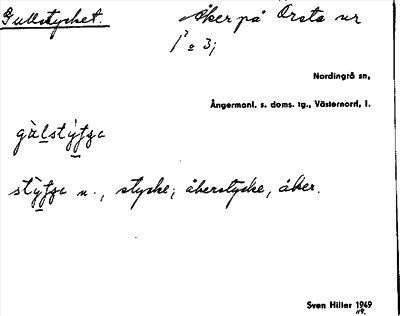 Gullstycket. Åker på Orsta nr
1² o 3;
Nordingrå sn,
Ångermanl. s. doms. tg., Västernorrl. l.
stycke; åkerstycke, åker.
Sven Hiller 1949